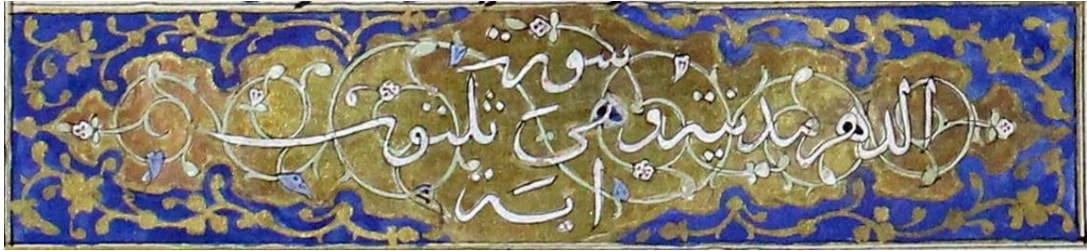 سورت
الدهر مدنية وهى ثلثون
اية